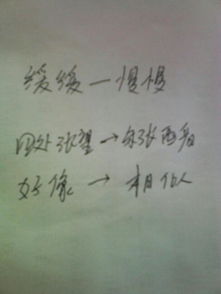 缓缓—慢慢
四处张望→东张西望
好像→相似